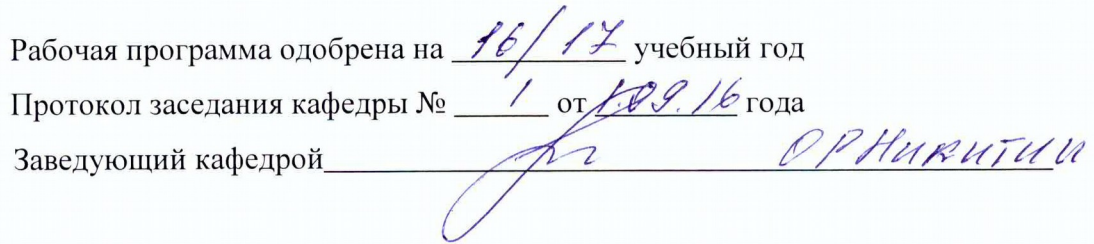 Рабочая программа одобрена на 16/17 учебный год
Протокол заседания кафедры № 1 от 1.09.16 года
Заведующий кафедрой ОРНикитин